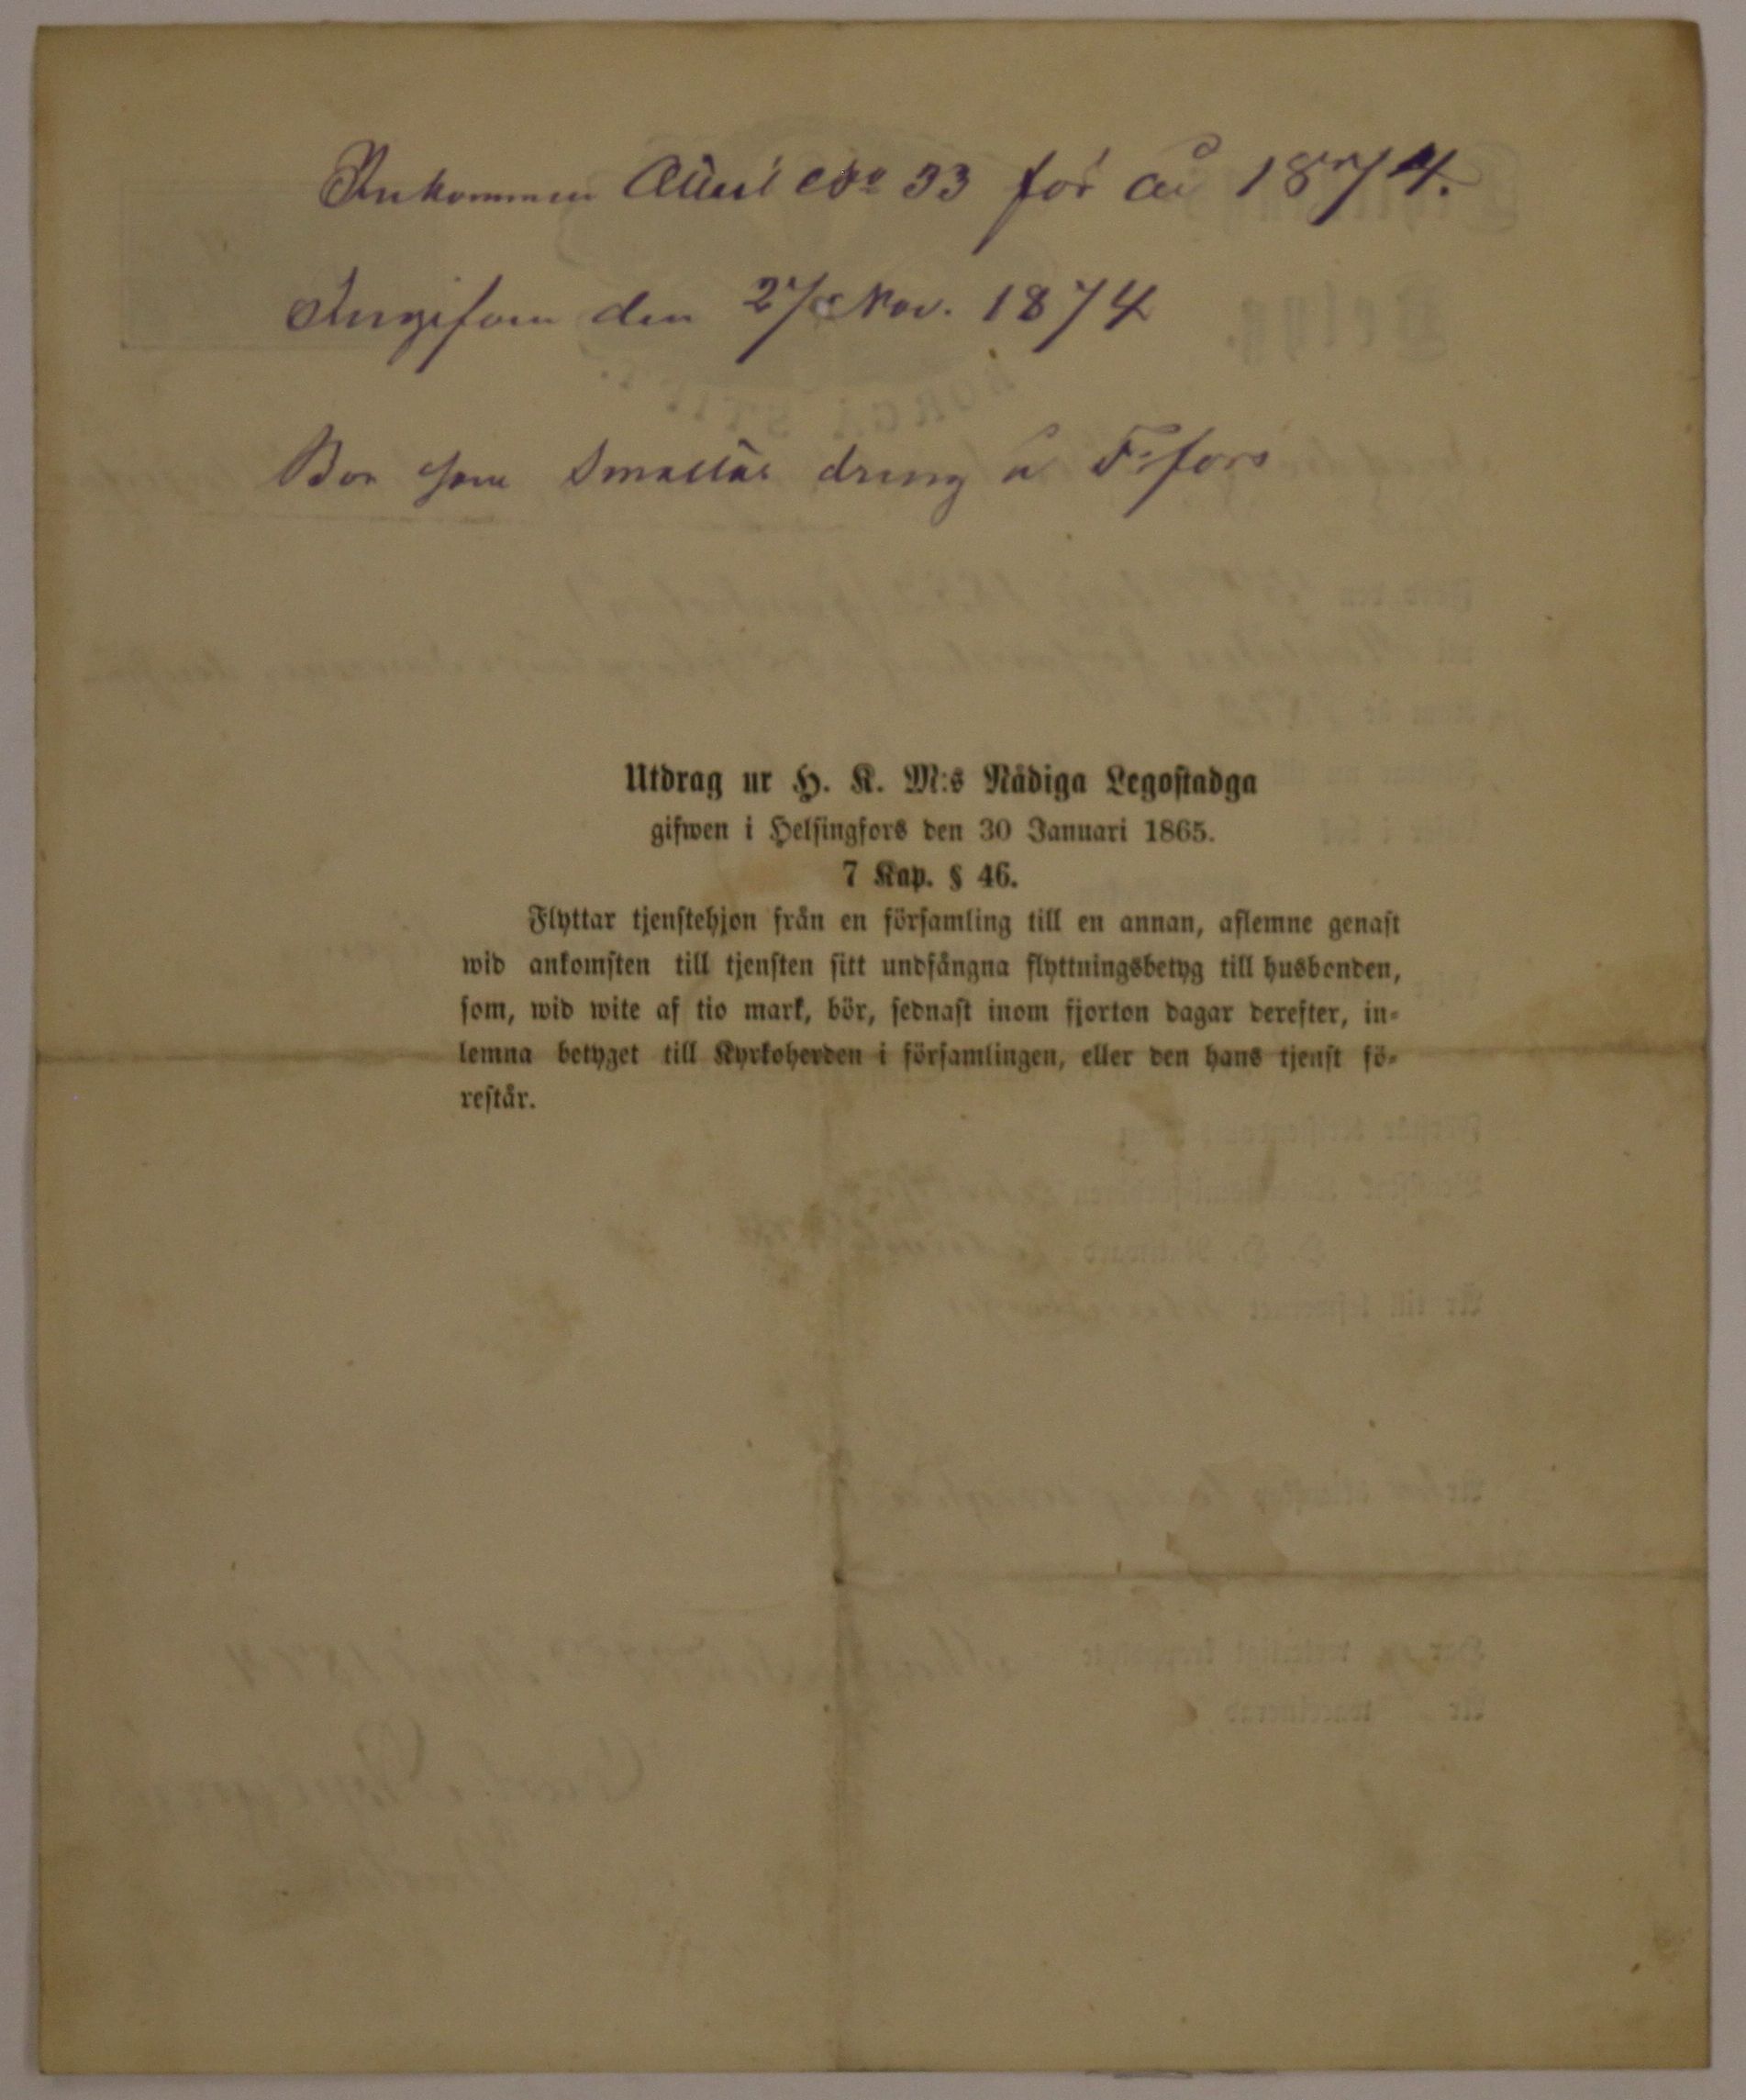 Inkommen No 33 för år 1874.
Ingifven den 27 Nov. 1874
Bor som dreng å F:fors
Utdrag ur H. K. M:s Nådiga Legostadga
gifwen i Helsingfors den 30 Januari 1865.
7 Kap. § 46.
Flyttar tjenstehjon från en församling till en annan, aflemne genast
wid ankomsten till tjensten sitt undfångna flyttningsbetyg till husbonden,
som, wid wite af tio mark, bör, sednast inom fjorton dagar derefter, in-
lemna betyget till Kyrkoherden i församlingen, eller den hans tjenst fö-
restår.